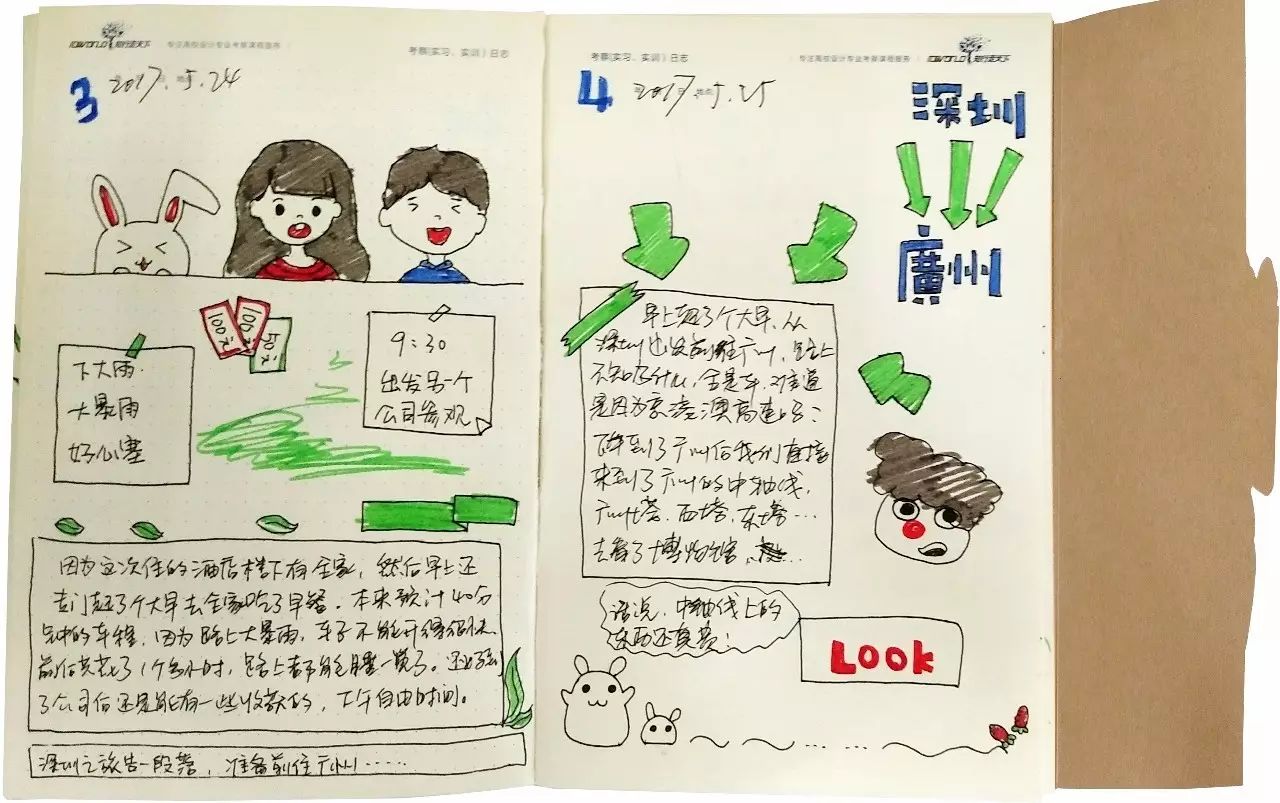 IDWORLD 知行走天下
专注高校设计专业考察课程服务
考察(实习、实训)日志
3
2017.5.24
100元
100元
50元
下大雨.
大暴雨
好心塞
9:30
出发另一个
公司参观
因为这次住的酒店楼下有全家,然后早上还
专门起了个大早去全家吃了早餐.本来预计40分
钟的车程,因为路上大暴雨,车子不能开得很快.
前后共花了1个多小时,路上都能睡一觉了。还好到
了公司后还是能有一些收获的,下午自由时间。
深圳之旅告一段落,准备前往广州……
考察(实习、实训)日志
专注高校设计专业考察课程服务
IDWORLD 知行走天下
4
2017.5.25
深圳
廣州
早上起了个大早,从
深圳出发前往广州,路上
不知为什么,全是车,难道
是因为京港澳高速吗?
下车到了广州后我们直接
来到了广州的中轴线,
广州塔,西塔,东塔…
去看了博物馆,
话说,中轴线上的
东西还真贵;
Look